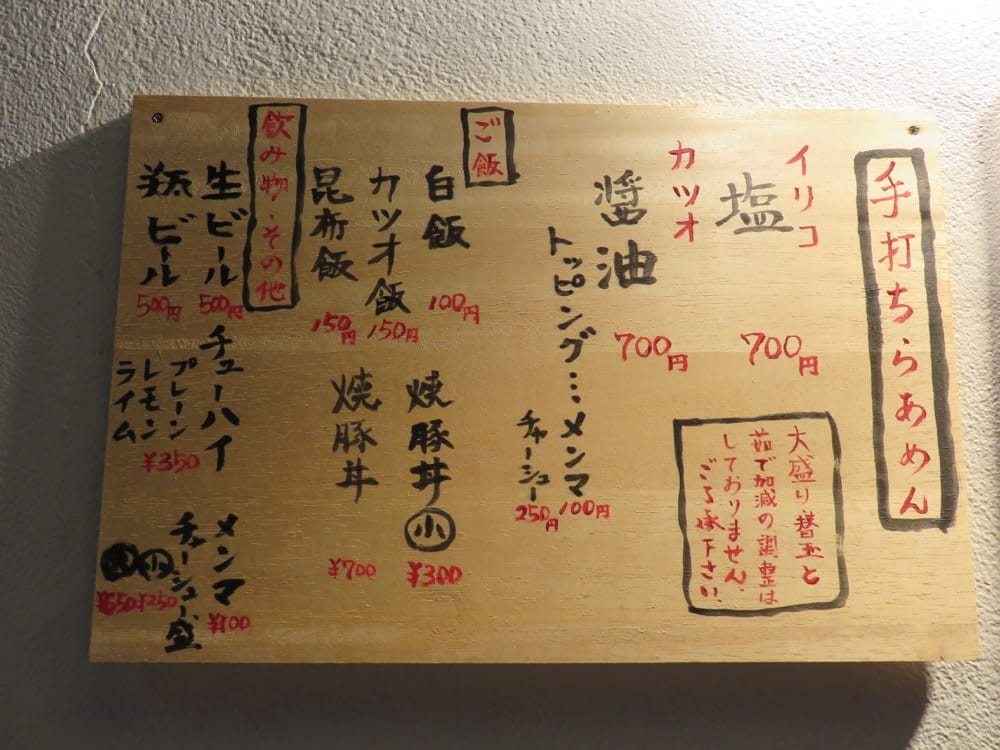 手打ちらあめん
イリコ
塩
700円
カツオ
醤油
700円
トッピング…メンマ
100円
チャーシュー
250円
大盛り替玉と
茹で加減の調整は
しておりません。
ご了承下さい。
ご飯
白飯
100円
カツオ飯
150円
昆布飯
150円
焼豚丼小
¥300
焼豚丼
¥700
飲み物・その他
生ビール
500円
瓶ビール
500円
チューハイ
プレーン
レモン
ライム
¥350
メンマ
¥100
チャーシュー盛
¥250
¥550